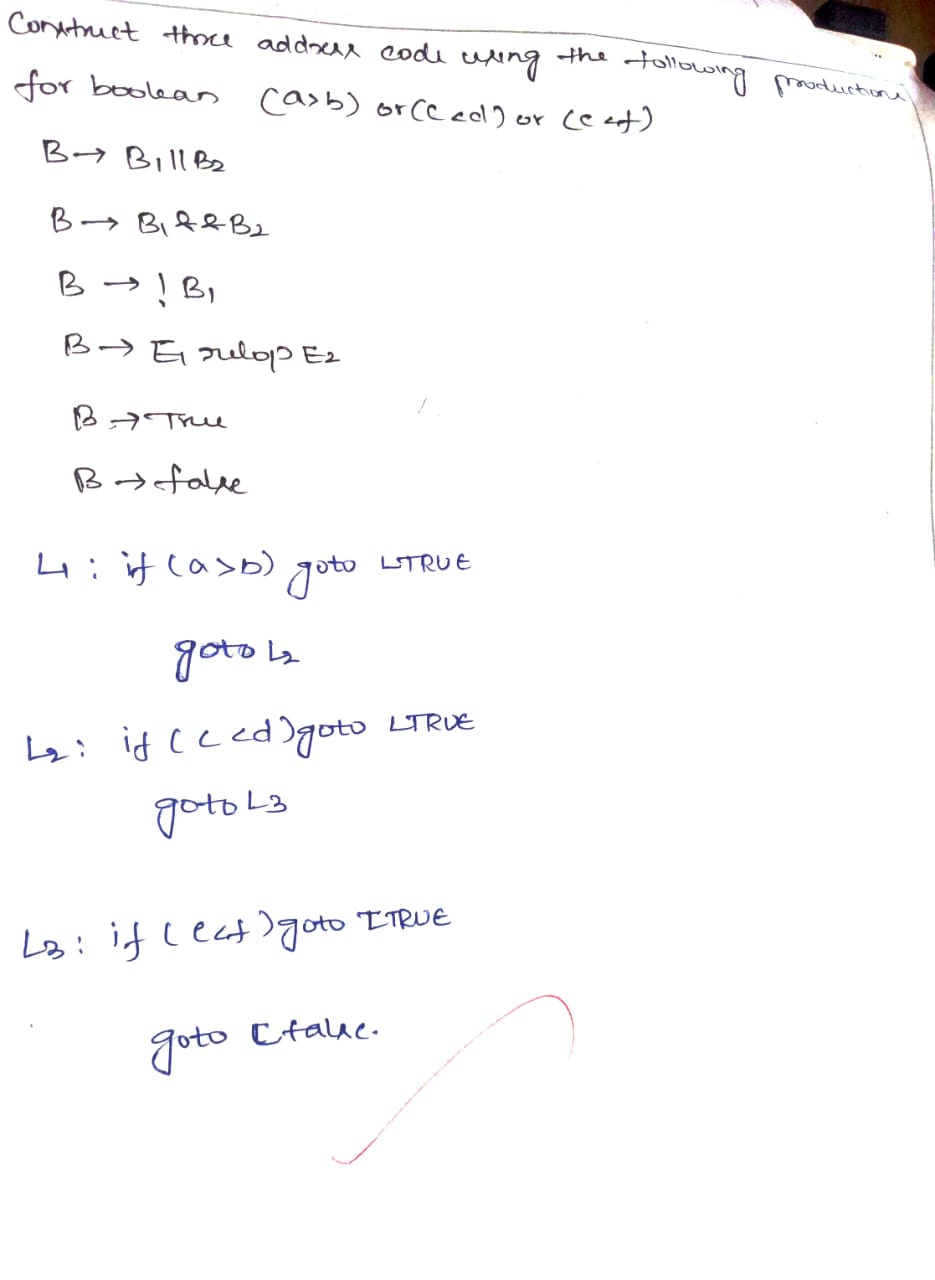 Construct three address code using the following productions
for boolean (a>b) or (c<d) or (e<f)
B → B1 || B2
B → B1 && B2
B → ! B1
B → E1 relop E2
B → True
B → false
L1 : if (a>b) goto LTRUE
goto L2
L2 : if (c<d) goto LTRUE
goto L3
L3 : if (e<f) goto LTRUE
goto Lfalse.